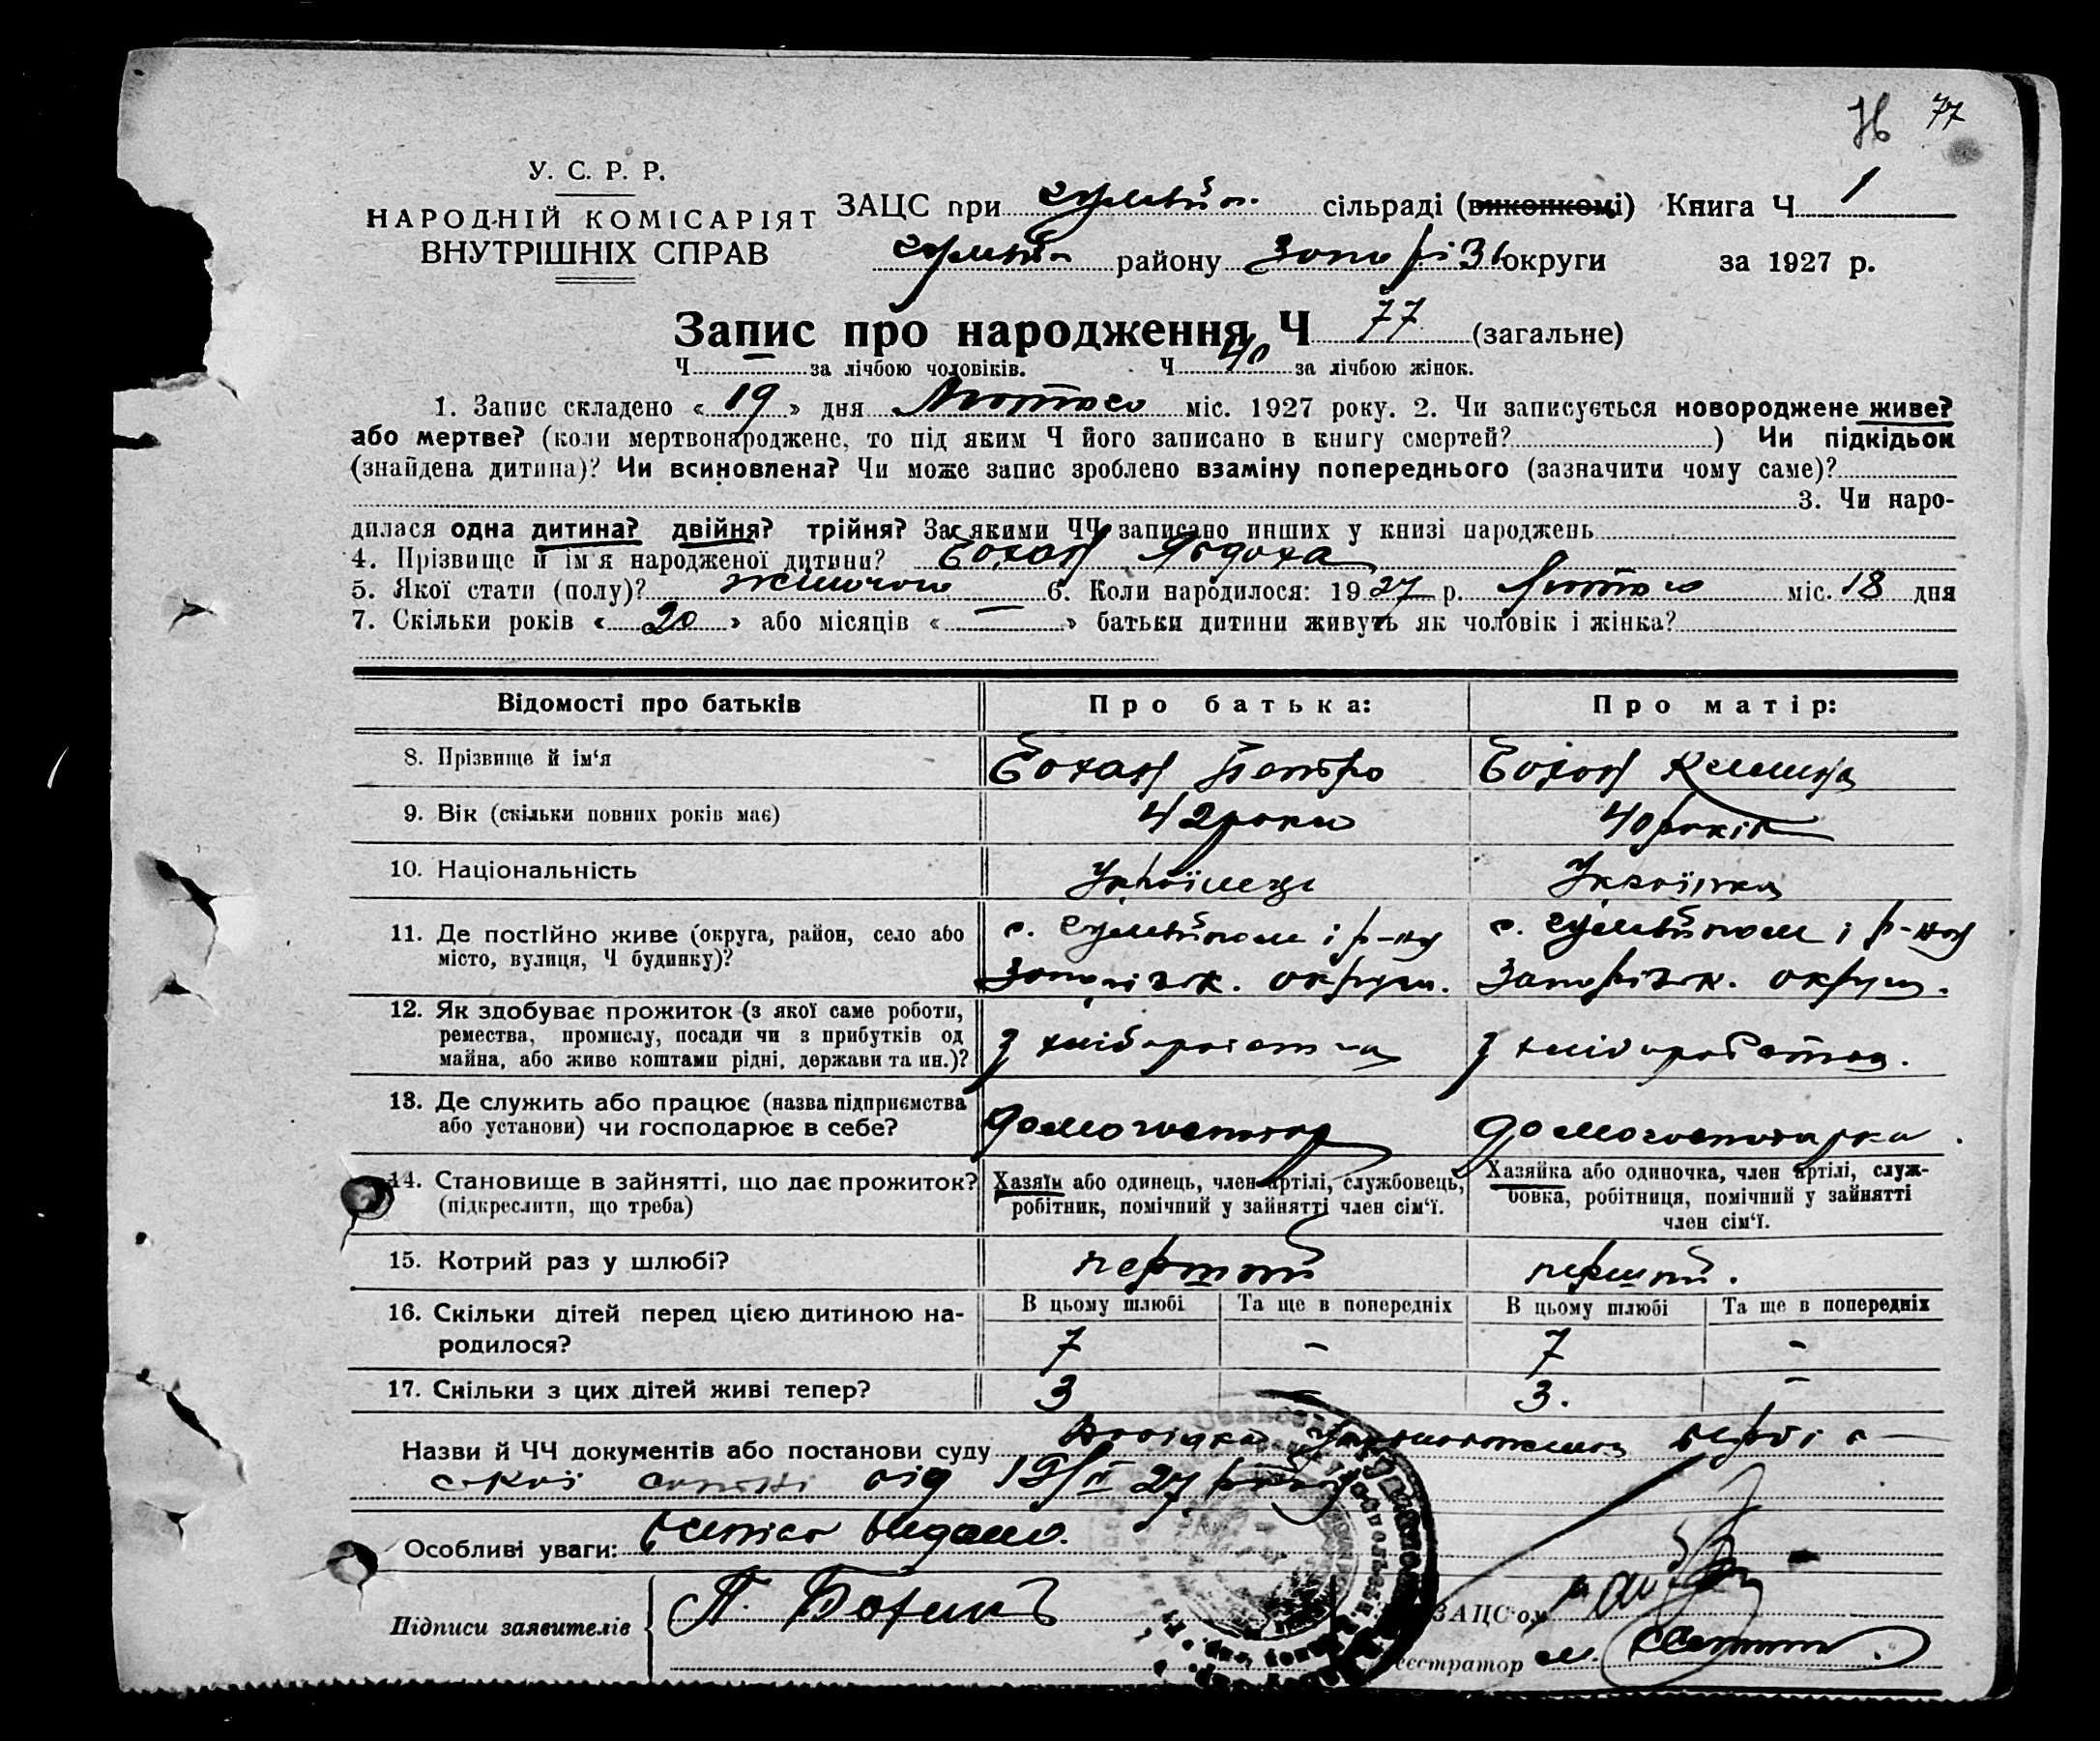 76 77
У. С. Р. Р.
НАРОДНІЙ КОМІСАРІЯТ
ВНУТРІШНІХ СПРАВ
ЗАЦС при гуляйп. сільраді (виконкомі) Книга Ч 1
гуляйп району Запоріз округи за 1927 р.
Запис про народження Ч 77 (загальне)
Ч — за лічбою чоловіків. Ч 40 за лічбою жінок.
1. Запис складено « 19 » дня Лютого міс. 1927 року. 2. Чи записується новороджене живе?
або мертве? (коли мертвонароджене, то під яким Ч його записано в книгу смертей? ) Чи підкідьок
(знайдена дитина)? Чи всиновлена? Чи може запис зроблено взаміну попереднього (зазначити чому саме)?
3. Чи наро-
дилася одна дитина? двійня? трійня? За якими ЧЧ записано инших у книзі народжень
4. Прізвище й ім'я народженої дитини? Бохан Явдоха
5. Якої стати (полу)? жіночого 6. Коли народилося: 1927 р. Лютого міс. 18 дня
7. Скільки років « 20 » або місяців « — » батьки дитини живуть як чоловік і жінка?
Відомості про батьків Про батька: Про матір:
8. Прізвище й ім‘я Бохан Петро Бохан
9. Вік (скільки повних років має) 42 роки 40 років
10. Національність Українець Українка
11. Де постійно живе (округа, район, село або
місто, вулиця, Ч будинку)?
с. Гуляйполе і р-ну
Запорізк. округи.
с. Гуляйполе і р-ну
Запорізк. округи.
12. Як здобуває прожиток (з якої саме роботи,
ремества, промислу, посади чи з прибутків од
майна, або живе коштами рідні, держави та ин.)?
з хліборобства з хліборобства.
13. Де служить або працює (назва підприємства
або установи) чи господарює в себе?
домогосподар домогосподарка.
14. Становище в зайнятті, що дає прожиток?
(підкреслити, що треба)
Хазяїн або одинець, член артілі, службовець,
робітник, помічний у зайнятті член сім‘ї.
Хазяйка або одиночка, член артілі, служ-
бовка, робітниця, помічний у зайнятті
член сім‘ї.
15. Котрий раз у шлюбі? перший перший.
16. Скільки дітей перед цією дитиною на-
родилося?
В цьому шлюбі Та ще в попередніх В цьому шлюбі Та ще в попередніх
7 - 7 -
17. Скільки з цих дітей живі тепер? 3 3. -
Назви й ЧЧ документів або постанови суду
від 19/II 27 року
Особливі уваги: видано.
Підписи заявителів П.
ЗАЦС'ом
еєстратор